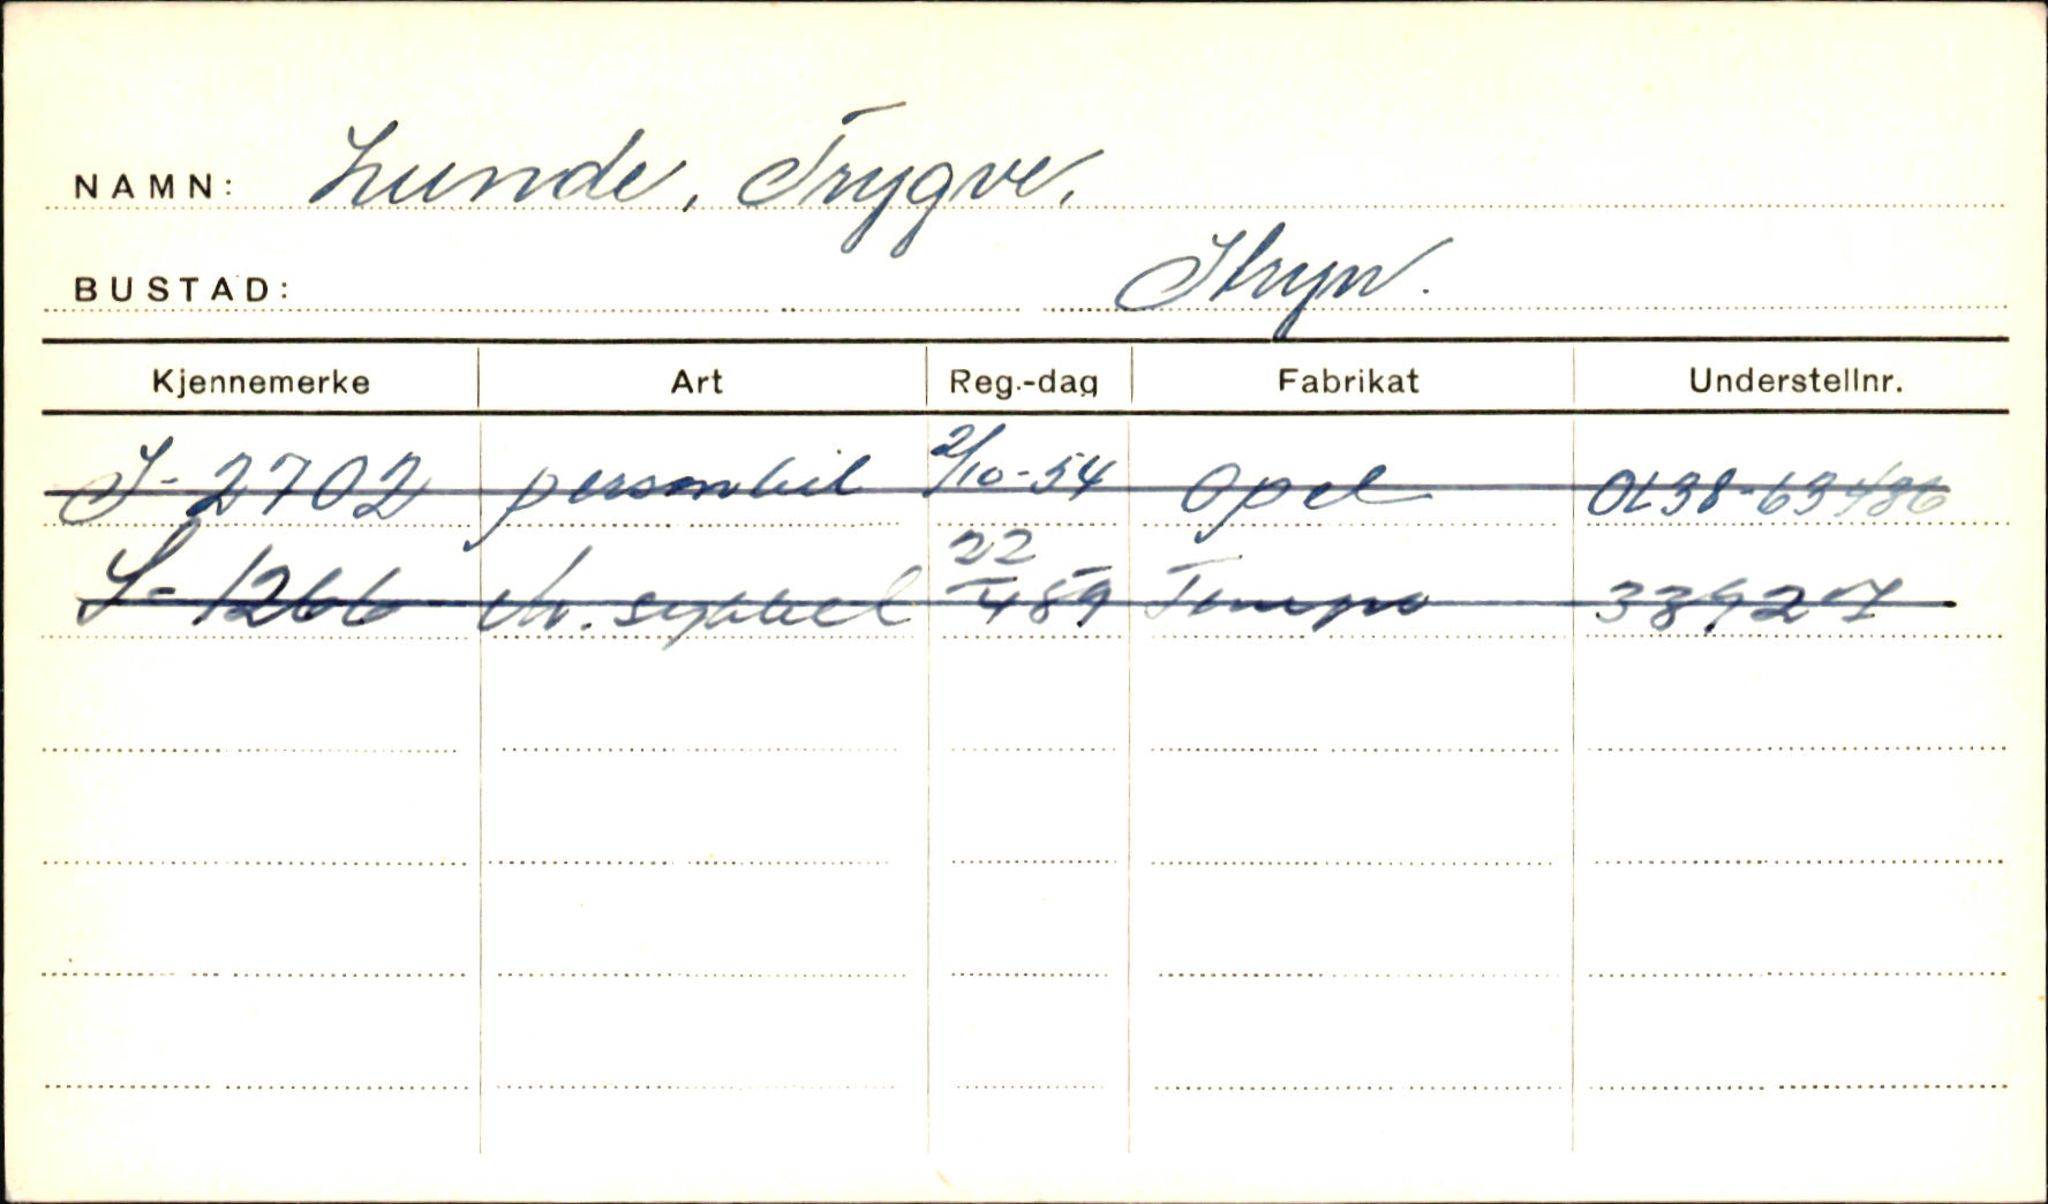 NAMN: Lunde, Trygve,
BUSTAD: Stryn.
Kjennemerke Art Reg.-dag Fabrikat Understellnr.
S-2702 personbil 2/10-54 Opel OL38-63486
S-1266 m. sykkel 22/4 59 Tempo 339207